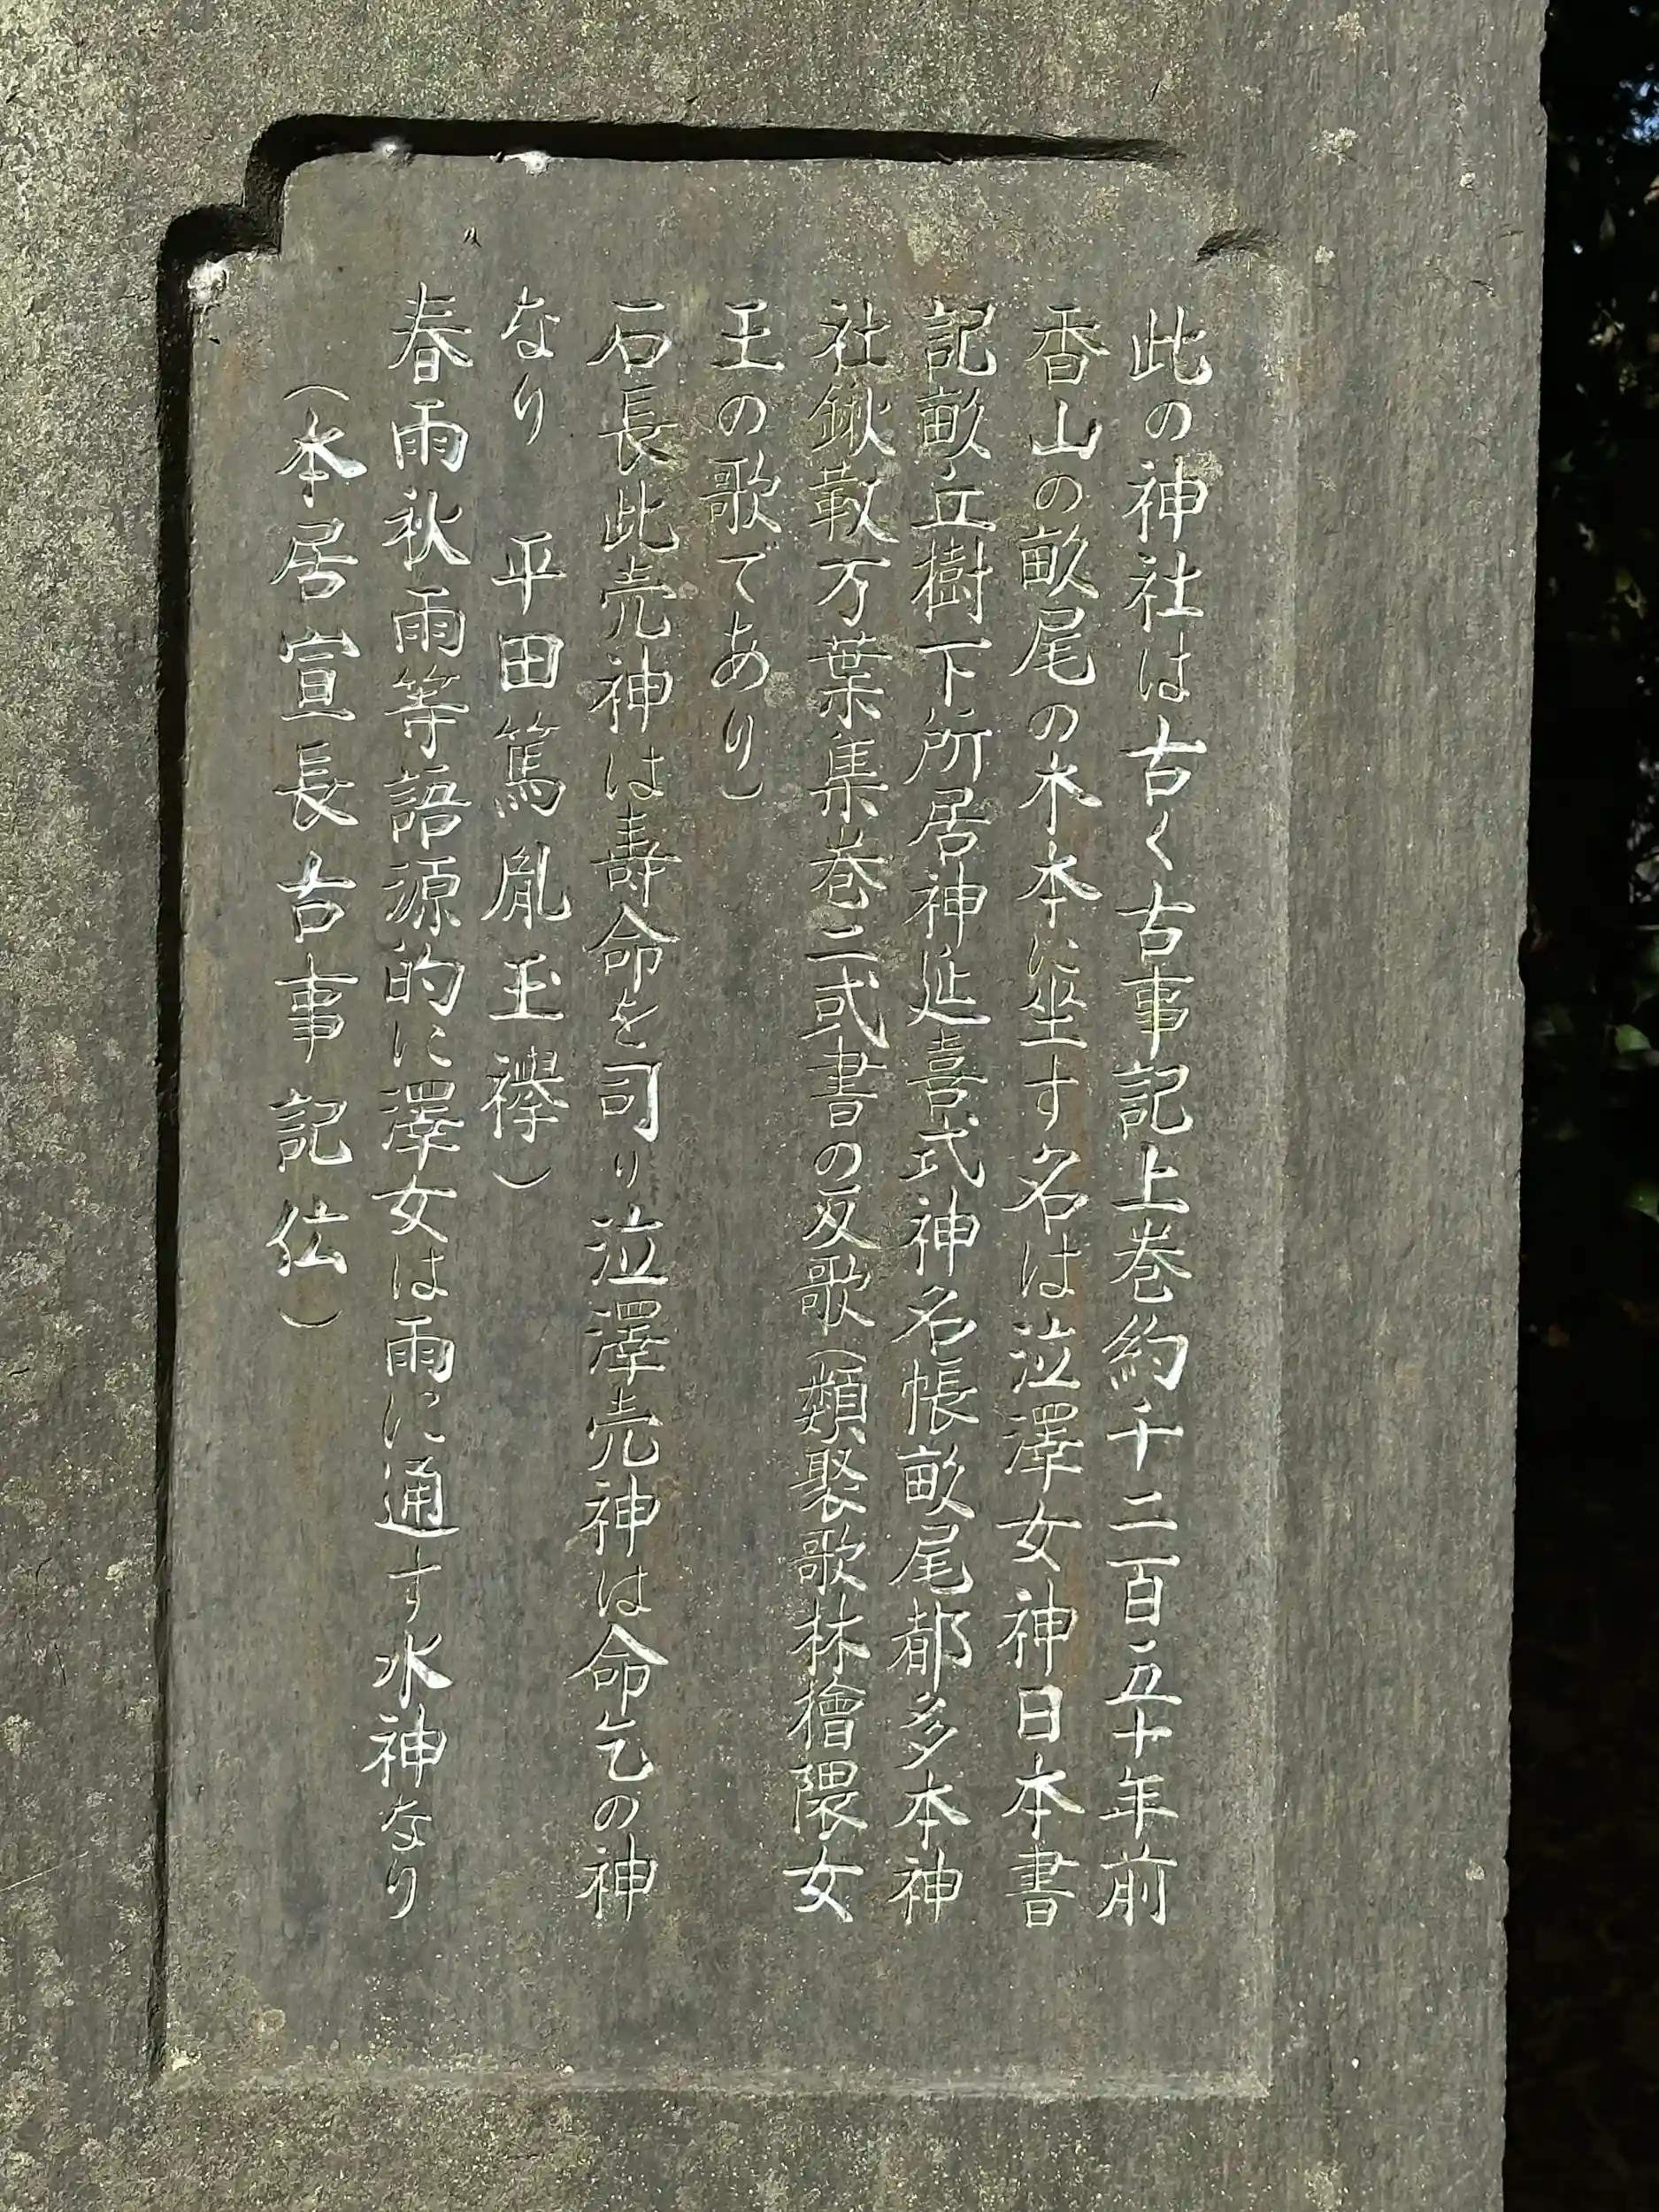 此の神社は古く古事記上巻約千二百五十年前
香山の畝尾の木本に坐す名は泣澤女神日本書
記畝丘樹下所居神延喜式神名帳畝尾都多本神
社鍬靫万葉集巻二或書の反歌(類聚歌林檜隈女
王の歌であり)
石長此売神は壽命を司り泣澤売神は命乞の神
なり　平田篤胤玉襷)
春雨秋雨等語源的に澤女は雨に通す水神なり
(本居宣長古事記伝)